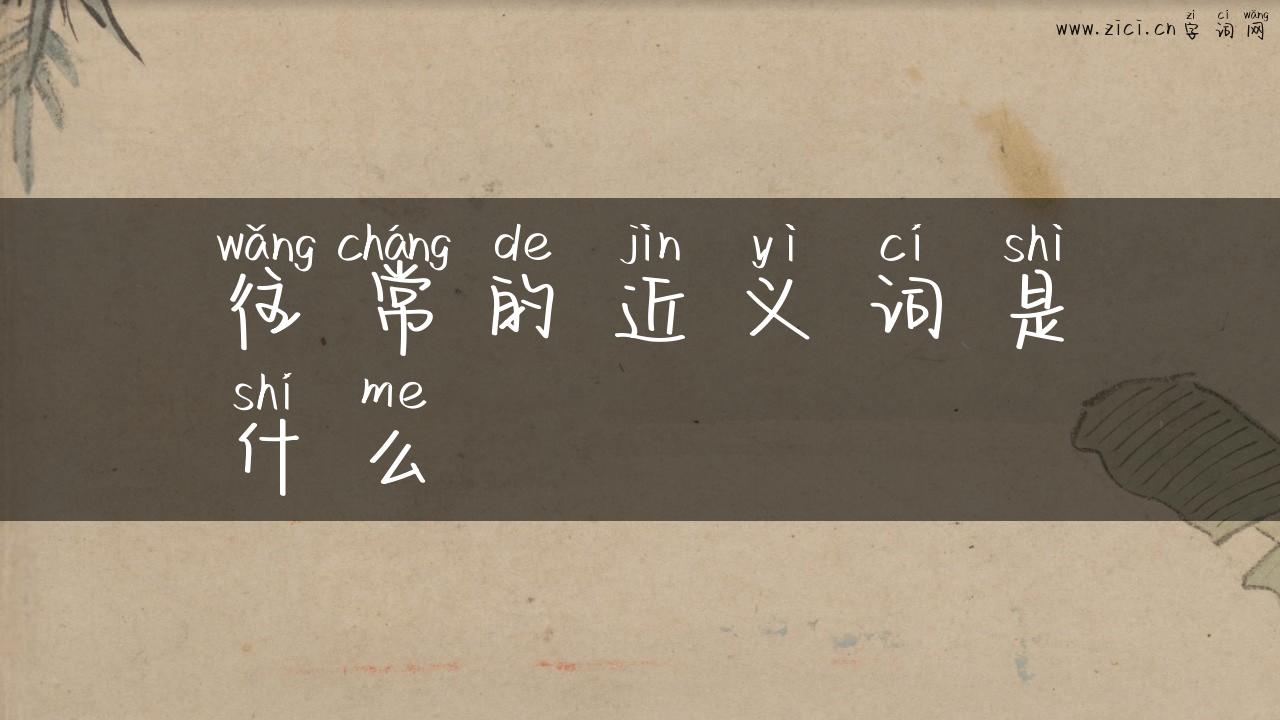 zì cí wǎng
www.zici.cn 字词网
wǎng cháng de jìn yì cí shì
往常的近义词是
shí me
什么